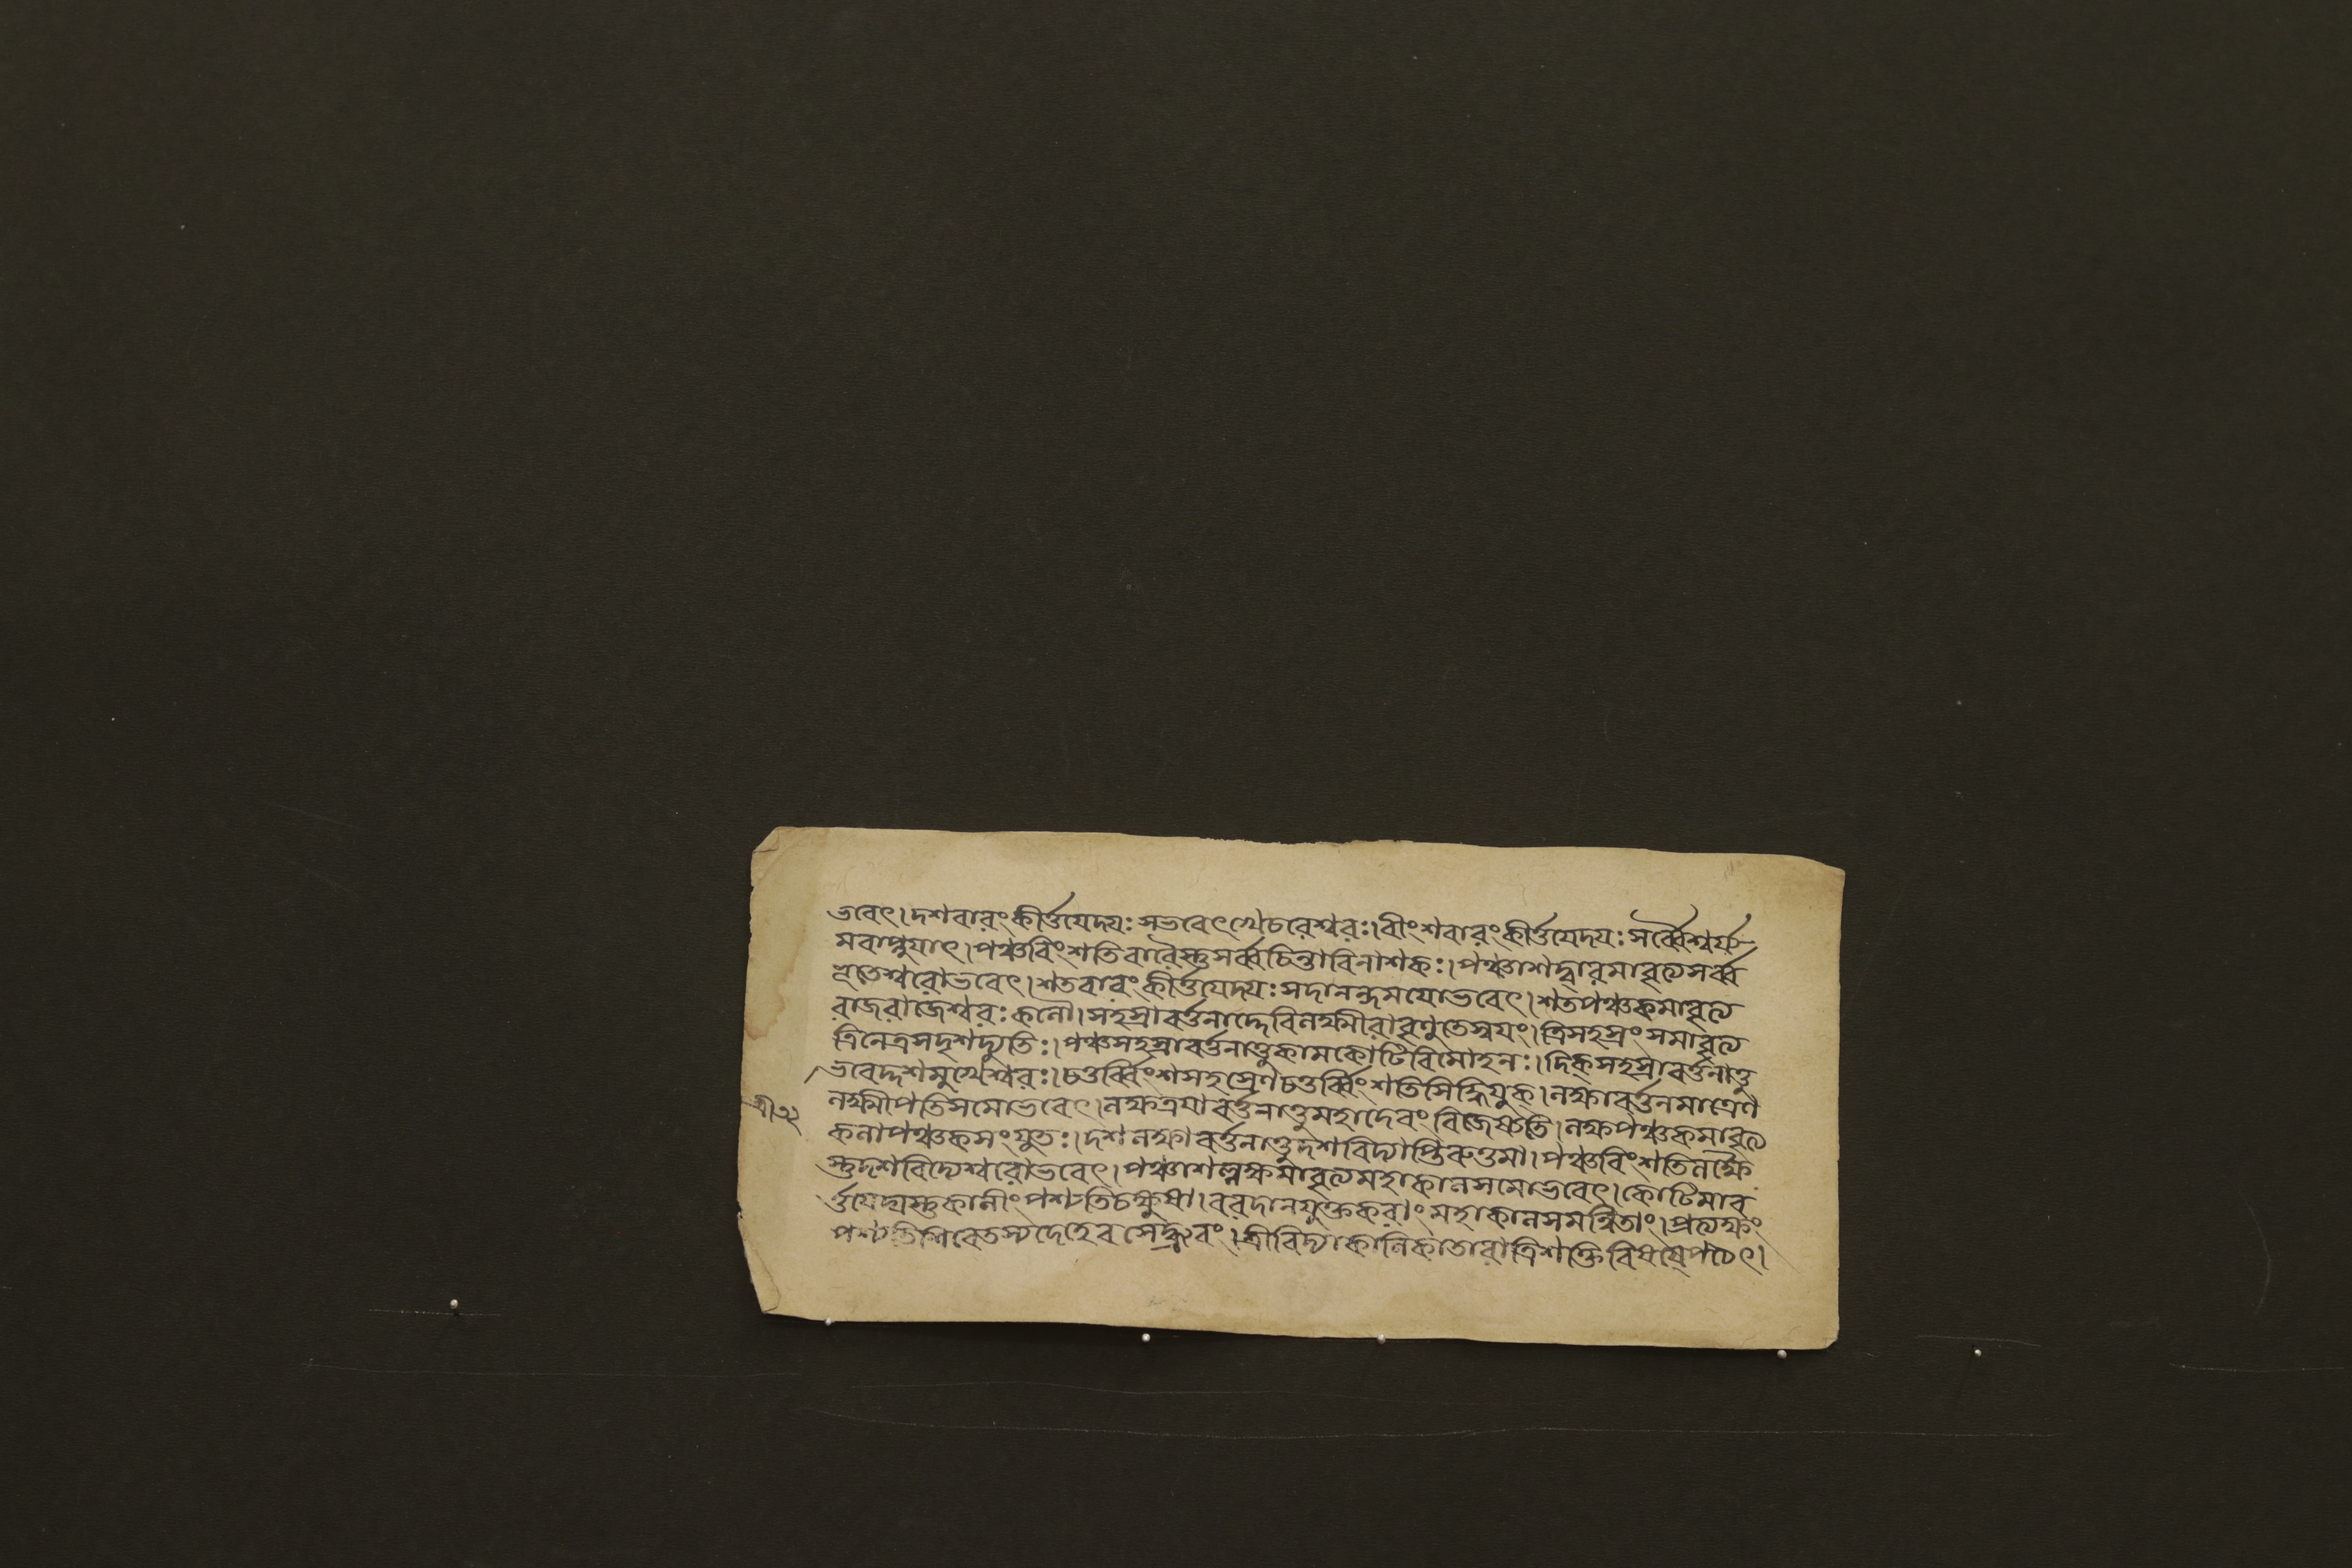 ভবেৎ। দশবারংকীর্ত্তয়েদ্যঃসভবেৎখেচরেশ্বরঃ। বীংশবারংকীর্ত্তয়েদ্যঃসর্ব্বৈশ্বর্য্য
মবাপ্নুয়াৎ। পঞ্চবিংশতিবারৈস্তুসর্ব্বচিন্তাবিনাশকঃ। পঞ্চাশদ্বারমাবৃত্যসর্ব্ব
ভূতেশ্বরোভবেৎ। শতবারংকীর্ত্তয়েদ্যঃসদানন্দময়োভবেৎ। শতপঞ্চকমাবৃত্য
রাজরাজেশ্বরঃকলৌ। সহস্রাবর্ত্তনাদ্দেবিলক্ষ্মীরাবৃণুতেস্বয়ং। ত্রিসহস্রংসমাবৃত্য
ত্রিনেত্রসদৃশদ্যুতিঃ। পঞ্চসহস্রাবর্ত্তনাত্তুকামকোটিবিমোহনঃ। দিক্সহস্রাবর্ত্তনাত্তু
ভবেদ্দশমুখেশ্বরঃ। চতুর্ব্বিংশসহস্রেণচতুর্ব্বিংশতিসিদ্ধিযুক্। লক্ষাবর্ত্তনমাত্রেণ
লক্ষ্মীপতিসমোভবেৎ। লক্ষত্রয়াবর্ত্তনাত্তুমহাদেবংবিজেষ্যতি। লক্ষপঞ্চকমাবৃত্য
শ্রী২২
কলাপঞ্চকসংযুতঃ। দশলক্ষাবর্ত্তনাত্তুদশবিদ্যাপ্তিরুত্তমা। পঞ্চবিংশতিলক্ষৈ
স্তুদশবিদ্যেশ্বরোভবেৎ। পঞ্চাশল্লক্ষমাবৃত্যমহাকালসমোভবেৎ। কোটিমাব
র্ত্তয়েদ্যস্তুকালীংপশ্যতিচক্ষুষা। বরদানযুক্তকরাংমহাকালসমন্বিতাং। প্রত্যক্ষং
পশ্যতিশিবেতস্যদেহেবসেদ্ধ্রুবং। শ্রীবিদ্যাকালিকাতারাত্রিশক্তি